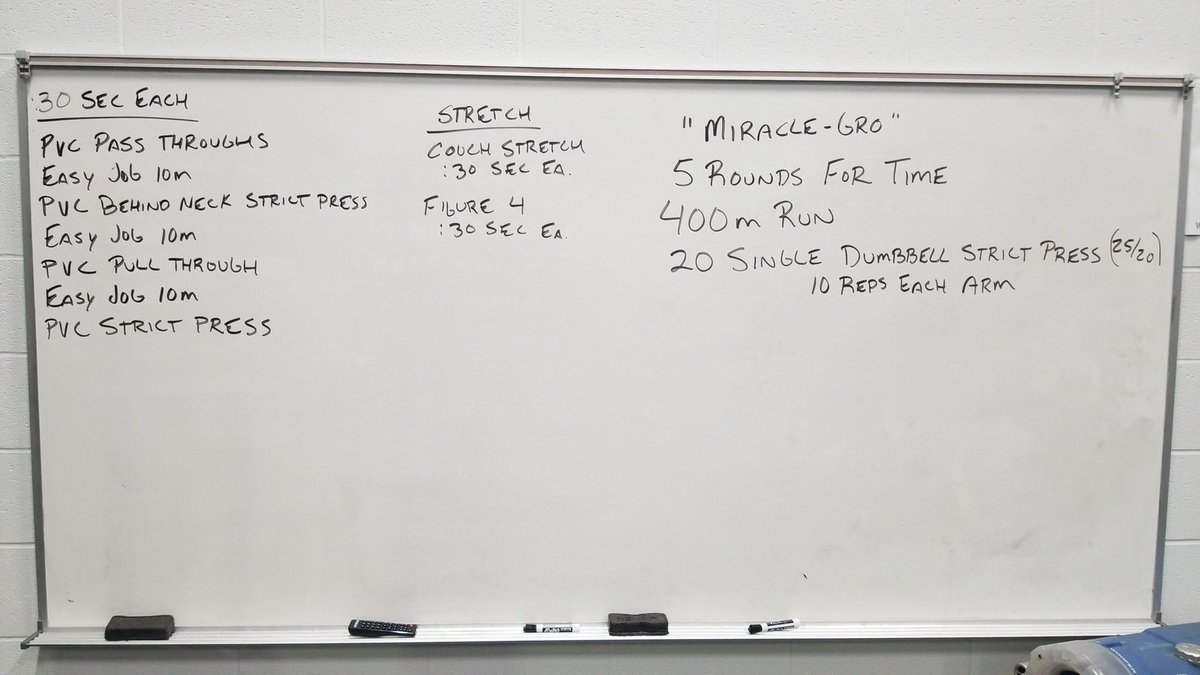 :30 SEC EACH
PVC PASS THROUGHS
EASY JOG 10m
PVC BEHIND NECK STRICT PRESS
EASY JOG 10m
PVC PULL THROUGH
EASY JOG 10m
PVC STRICT PRESS
STRETCH
COUCH STRETCH
:30 SEC EA.
FIGURE 4
:30 SEC EA.
"MIRACLE-GRO"
5 ROUNDS FOR TIME
400m RUN
20 SINGLE DUMBBELL STRICT PRESS (25/20)
10 REPS EACH ARM